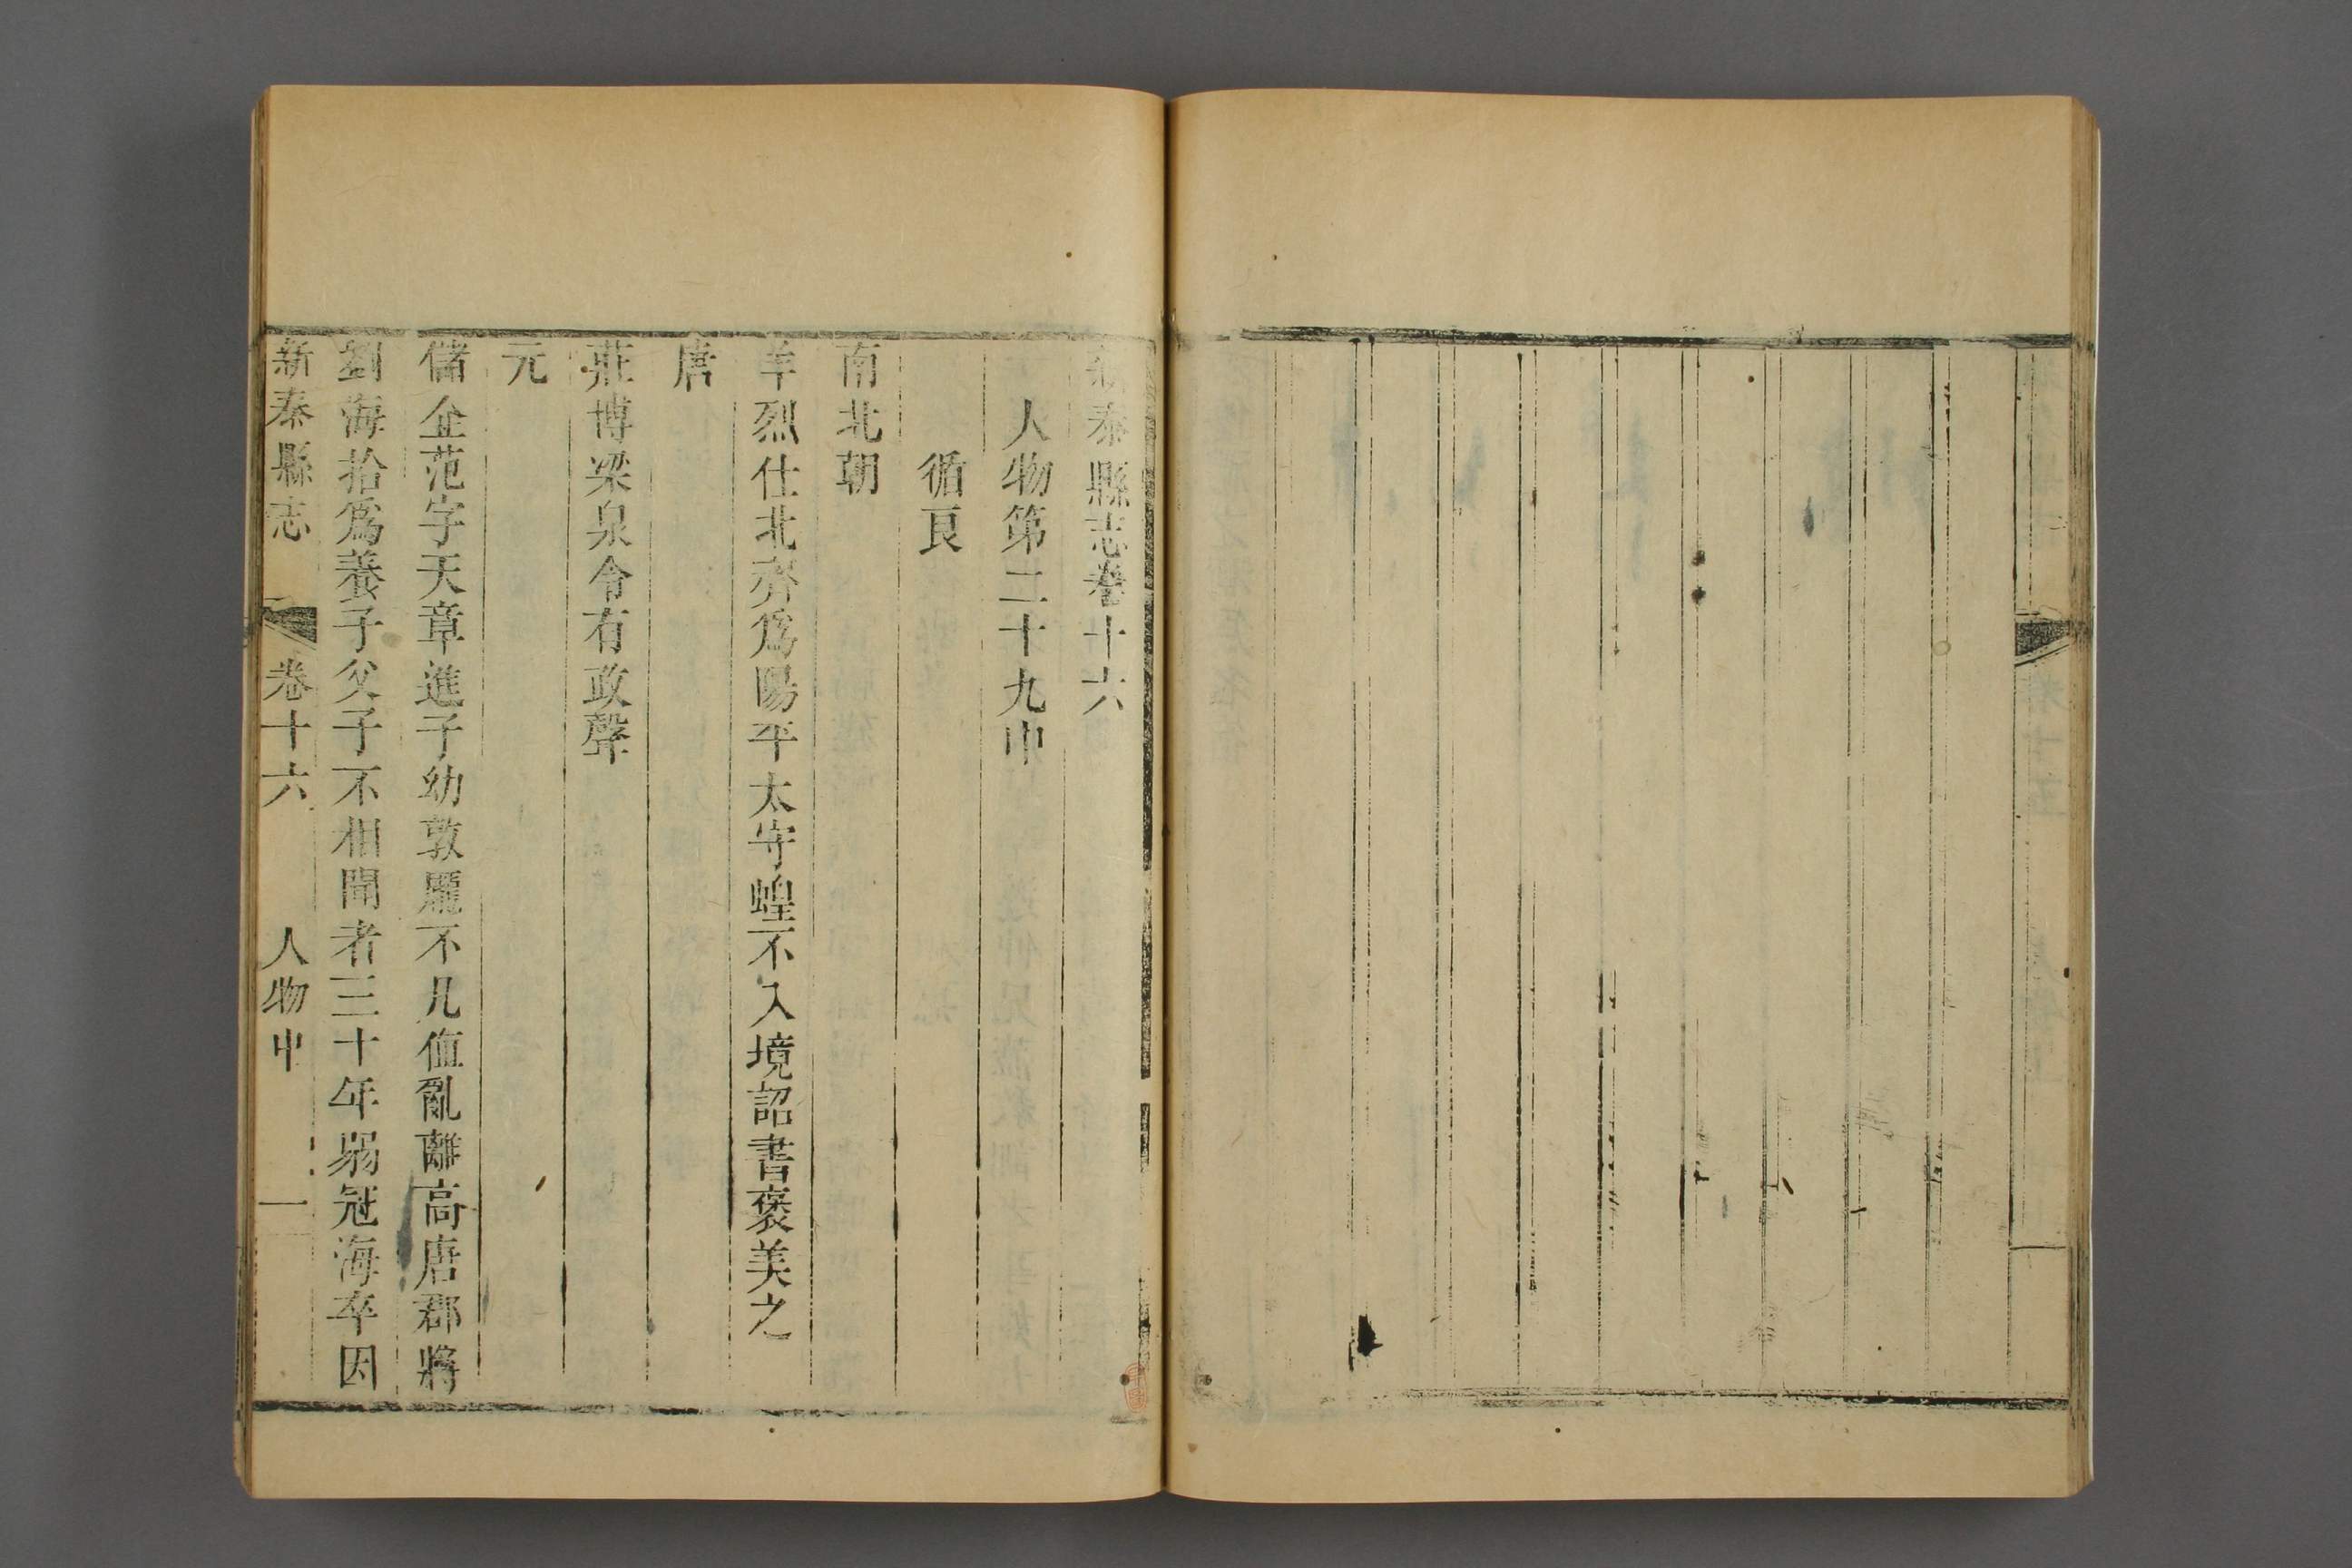 新泰縣志卷十六
人物第二十九中
循良
南北朝
羊烈仕北齊爲陽平太守蝗不入境詔書褒美之
唐
莊博梁泉令有政聲
元
儲企范字天章進子幼敦龎不凡值亂離高唐郡將
劉海拾爲養子父子不相聞者三十年弱冠海卒因
新泰縣志 卷十六 人物中 一